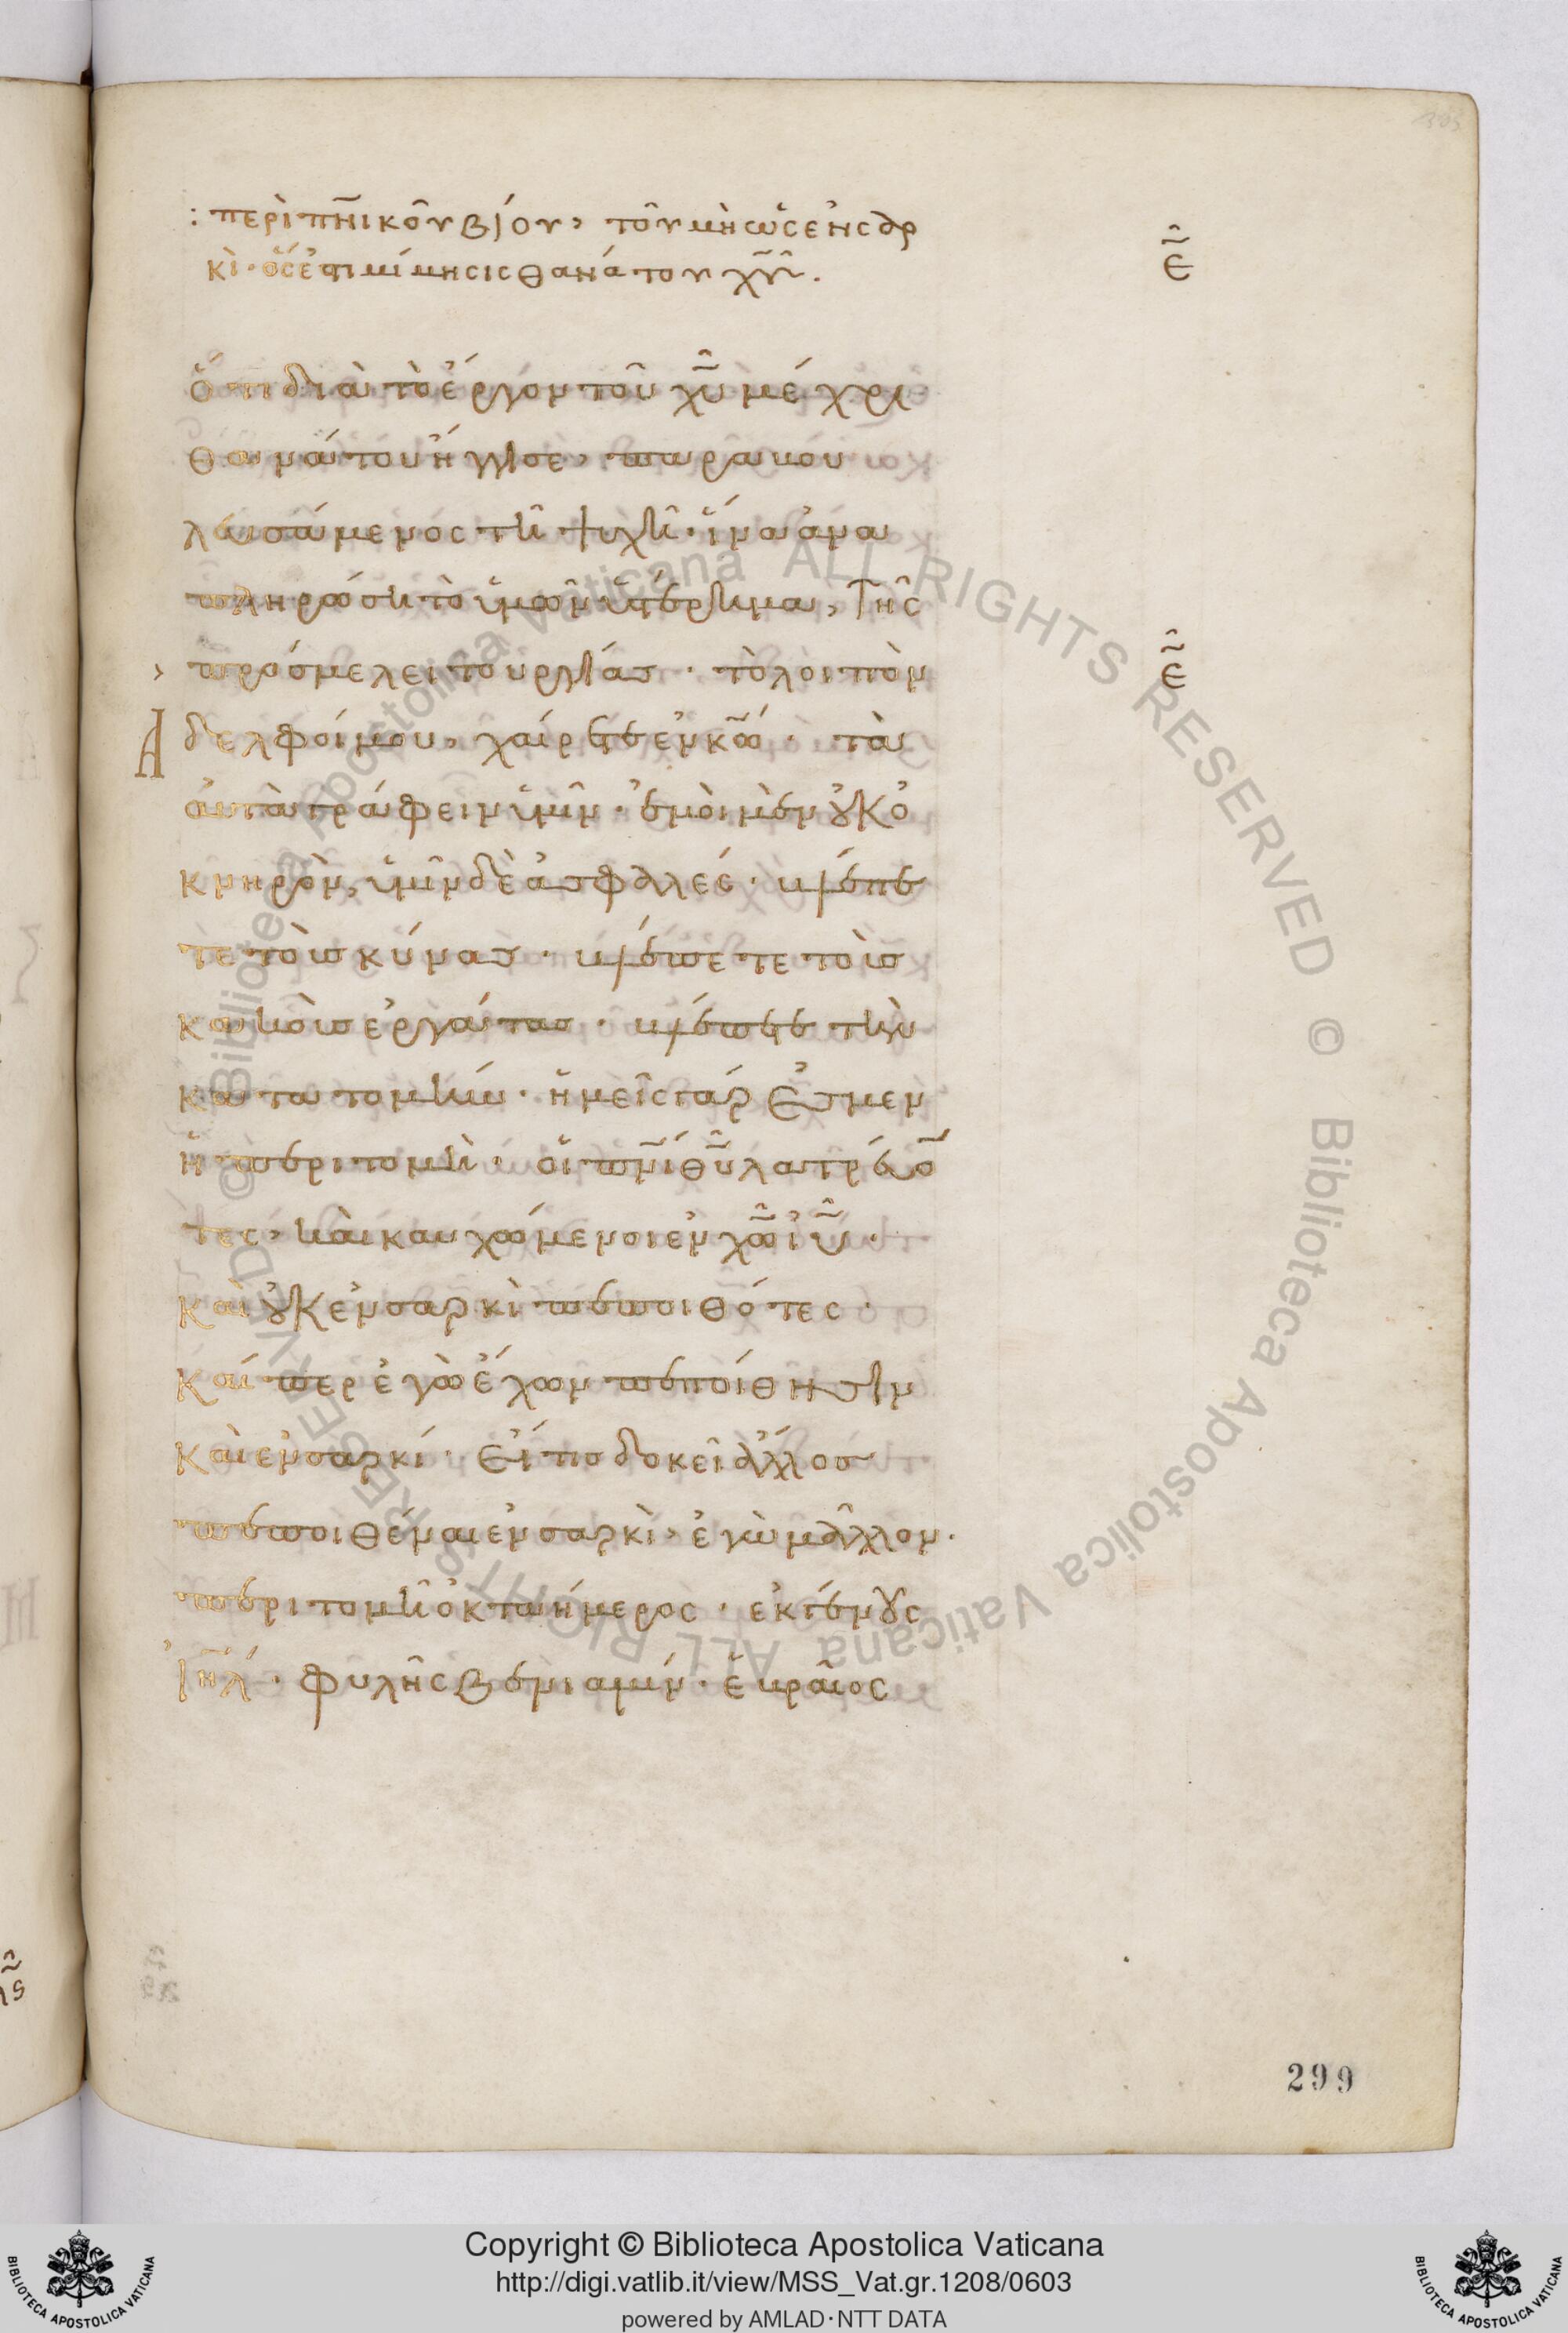 : περὶ πν̅ικοῦ βίου, τοῦ μὴ ὡς ἐν σαρ
κὶ· ὅς ἐ(στι) μίμησις θανάτου χ̅υ̅.
ε̅
ὅτι διὰ τὸ ἔργον τοῦ χ̅υ̅ μέχρι
θανάτου ἤγγισε, παραβου
λευσάμενος τῇ ψυχῇ· ἵνα ἀνα
πληρώσῃ τὸ ὑμῶν ὑστέρημα, τῆς
πρός με λειτουργίας· τὸ λοιπὸν
ε̅
Ἀδελφοί μου, χαίρετε ἐν κ̅ω̅· τὰ
αὐτὰ γράφειν ὑμῖν· ἐμοὶ μὲν οὐκ ὀ
κνηρὸν, ὑμῖν δὲ ἀσφαλές· βλέπε
τε τοὺς κύνας· βλέπετε τοὺς
κακοὺς ἐργάτας· βλέπετε τὴν
κατατομήν· ἡμεῖς γάρ ἐσμεν
ἡ περιτομὴ· οἱ πν̅ι θ̅υ̅ λατρεύο̅
τες, καὶ καυχώμενοι ἐν χ̅ω̅ ι̅υ̅·
καὶ οὐκ ἐν σαρκὶ πεποιθότες·
καίπερ ἐγὼ ἔχων πεποίθησιν
καὶ ἐν σαρκί· Εἴ τις δοκεῖ ἄλλος
πεποιθέναι ἐν σαρκὶ, ἐγὼ μᾶλλον·
περιτομῇ ὀκταήμερος· ἐκ γένους
ἰη̅λ· φυλῆς βενιαμίν· ἑβραῖος
299
Copyright © Biblioteca Apostolica Vaticana
http://digi.vatlib.it/view/MSS_Vat.gr.1208/0603
powered by AMLAD·NTT DATA